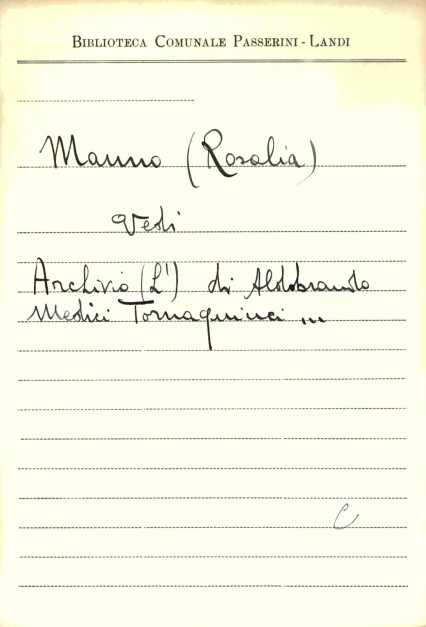 BIBLIOTECA COMUNALE PASSERINI - LANDI
Manno (Rosalia)
Vedi
Archivio (L') di Aldobrando
Medici Tornaquinci ...
C